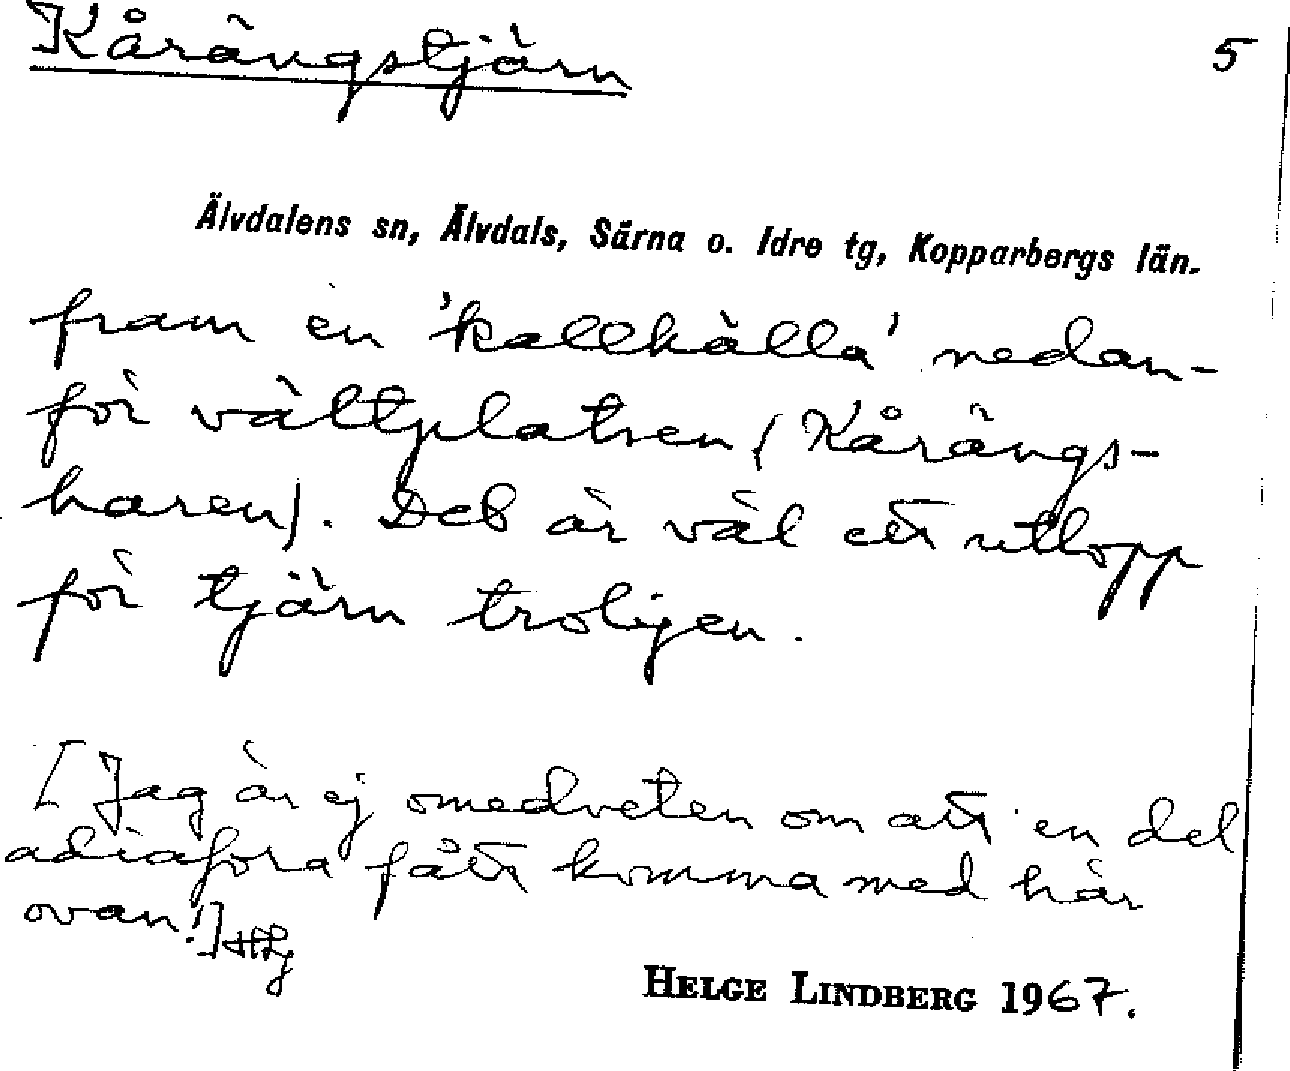 Kårängstjärn 5
Älvdalens sn, Älvdals, Särna o. Idre tg, Kopparbergs län.
fram en 'kallkälla' nedan-
för vältplatsen (Kårängs-
haren). Det är väl ett utlopp
för tjärn troligen.
[Jag är ej omedveten om att en del
adiafora fått komma med här
ovan!]
HELGE LINDBERG 1967.